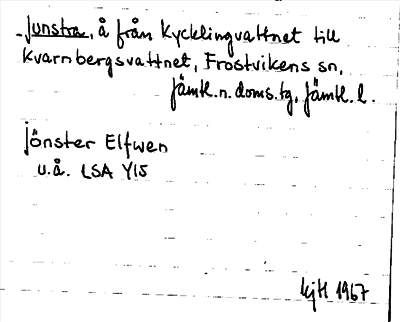 Junstra, å från Kycklingvattnet till
Kvarnbergsvattnet, Frostvikens sn,
Jämtl.n.doms.tg, Jämtl.l.
jönster Elfwen
u.å. LSA Y15
kjH 1967